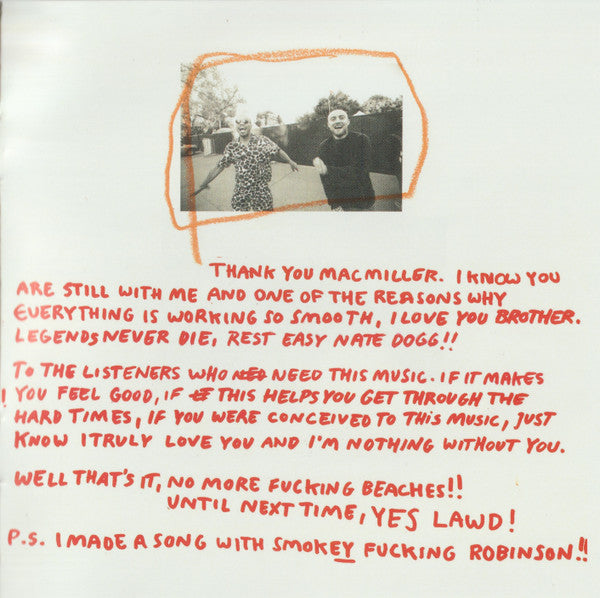 THANK YOU MAC MILLER. I KNOW YOU
ARE STILL WITH ME AND ONE OF THE REASONS WHY
EVERYTHING IS WORKING SO SMOOTH, I LOVE YOU BROTHER.
LEGENDS NEVER DIE, REST EASY NATE DOGG!!
TO THE LISTENERS WHO NEED NEED THIS MUSIC. IF IT MAKES
YOU FEEL GOOD, IF IF THIS HELPS YOU GET THROUGH THE
HARD TIMES, IF YOU WERE CONCEIVED TO THIS MUSIC, JUST
KNOW I TRULY LOVE YOU AND I'M NOTHING WITHOUT YOU.
WELL THAT'S IT, NO MORE FUCKING BEACHES!!
UNTIL NEXT TIME, YES LAWD!
P.S. I MADE A SONG WITH SMOKEY FUCKING ROBINSON!!